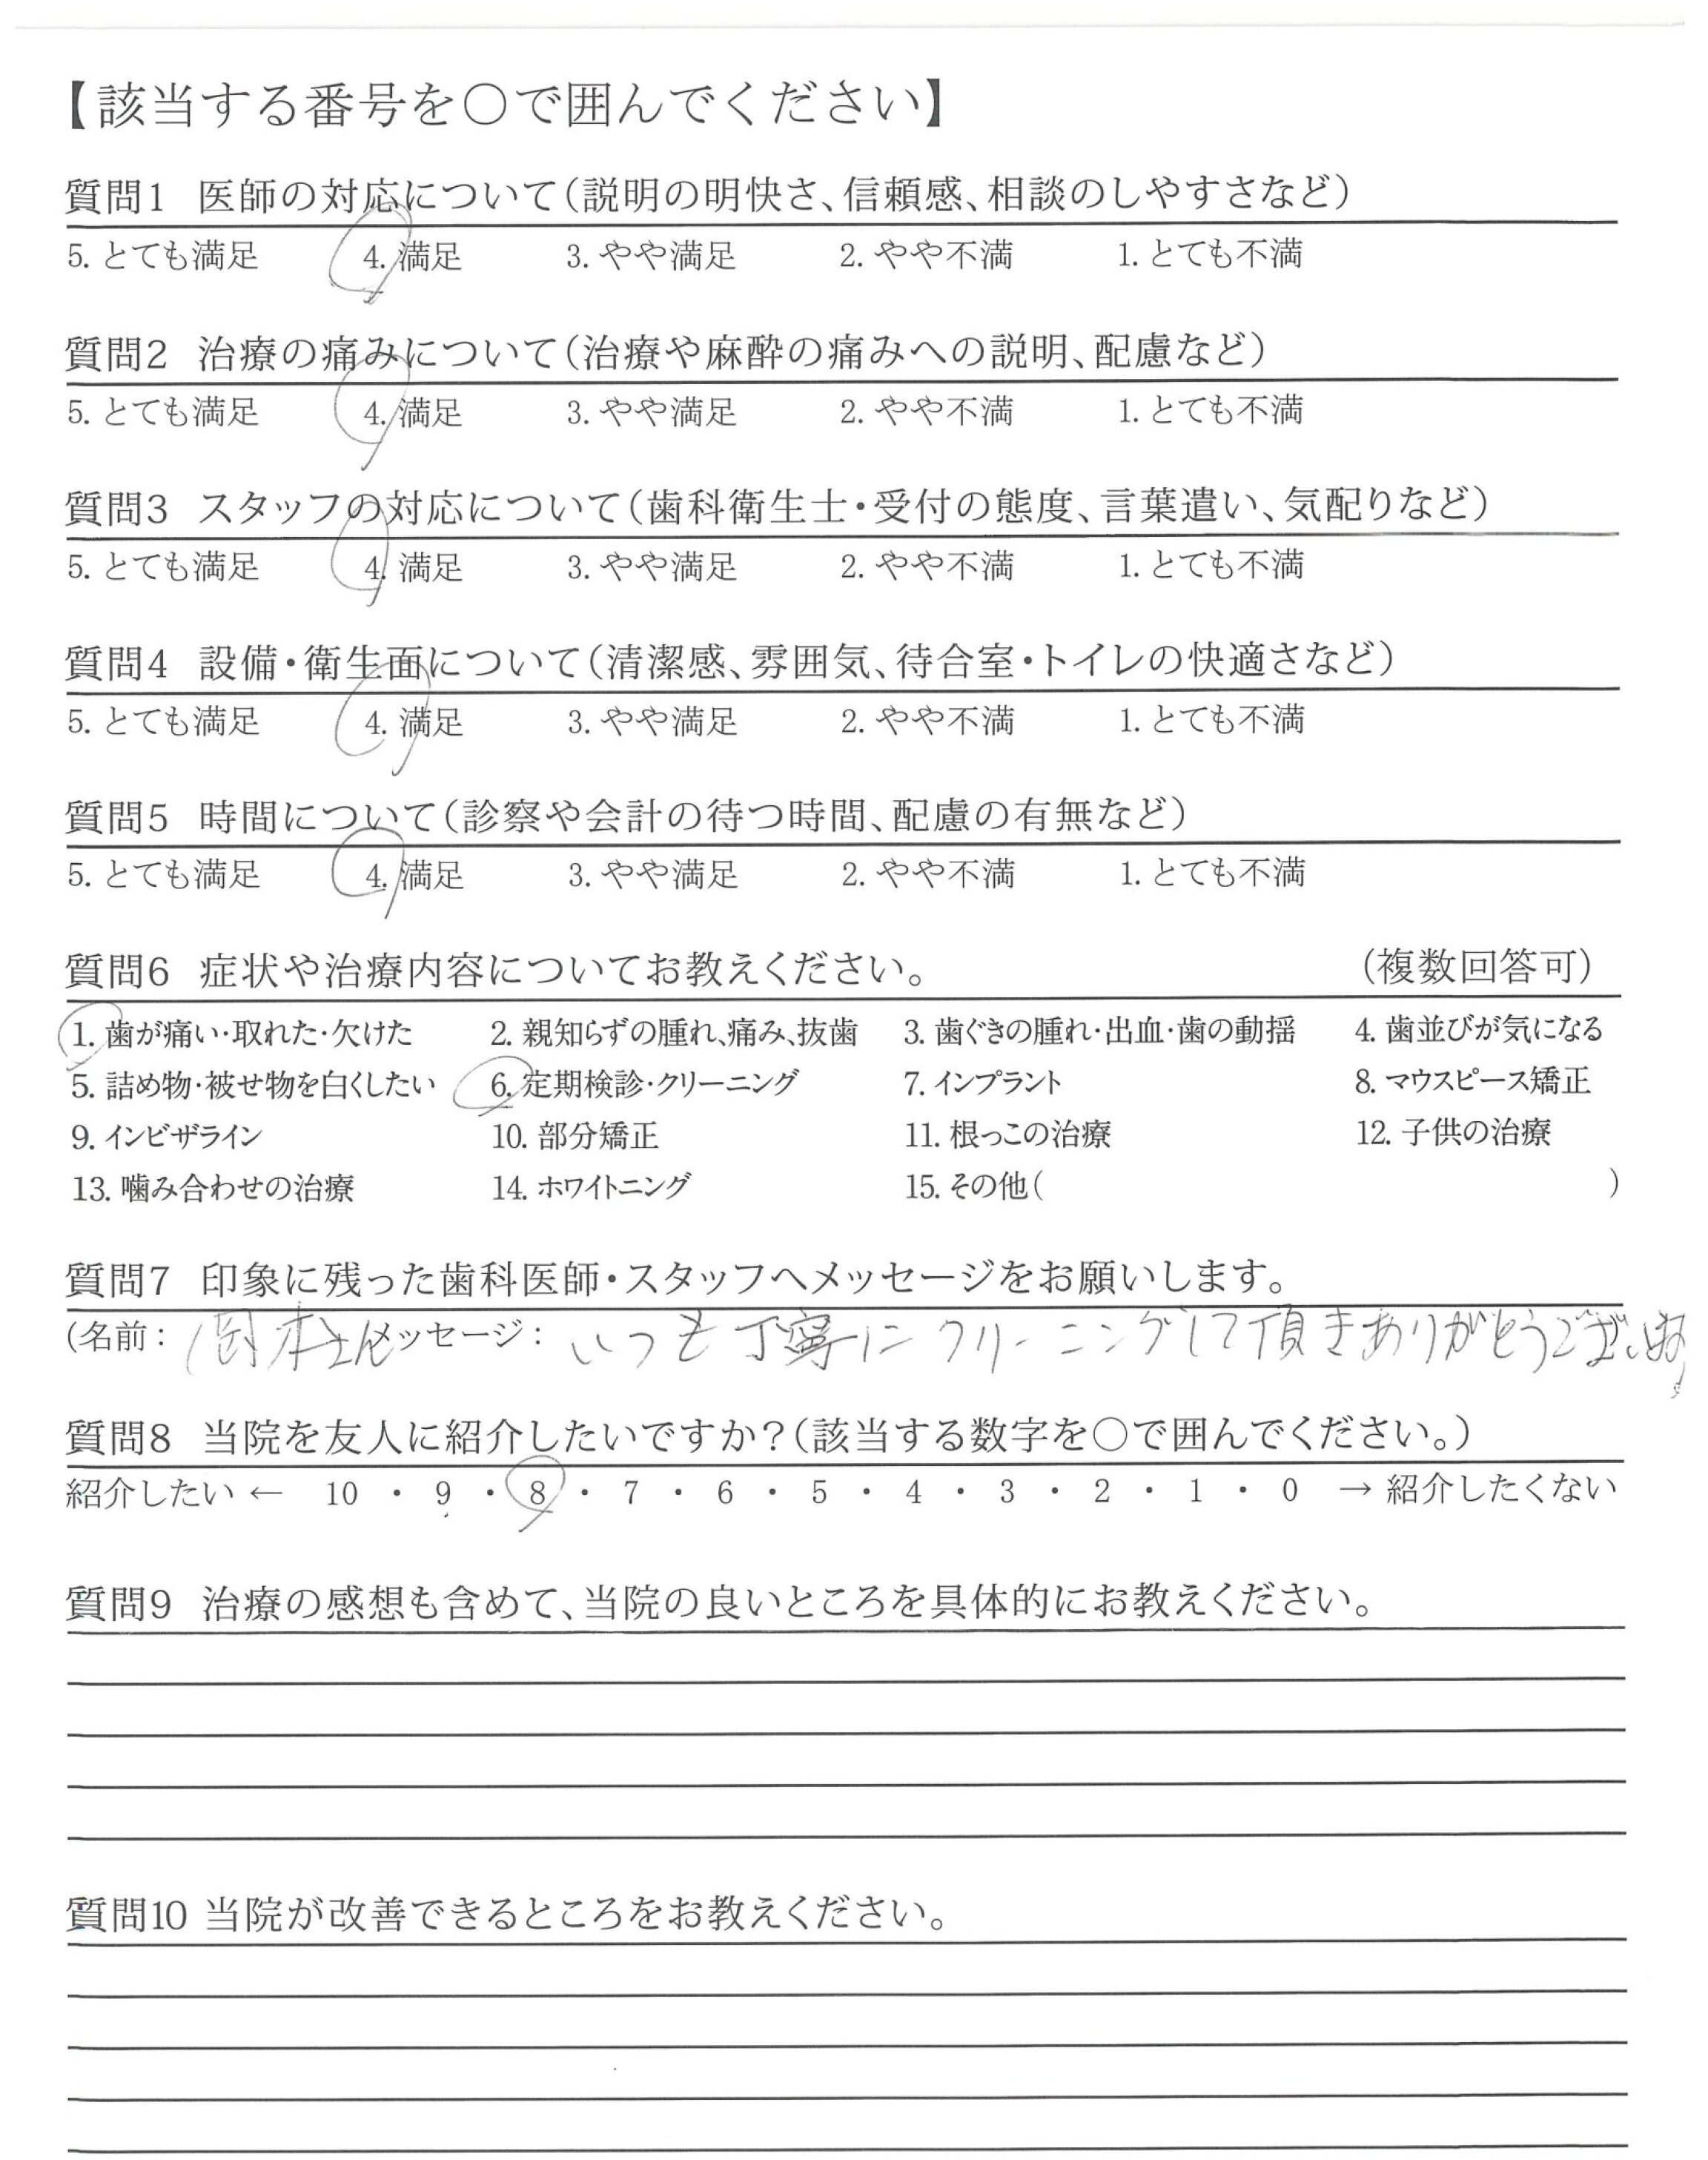 【該当する番号を○で囲んでください】
質問1 医師の対応について(説明の明快さ、信頼感、相談のしやすさなど)
5. とても満足 4. 満足 3. やや満足 2. やや不満 1. とても不満
質問2 治療の痛みについて(治療や麻酔の痛みへの説明、配慮など)
5. とても満足 4. 満足 3. やや満足 2. やや不満 1. とても不満
質問3 スタッフの対応について(歯科衛生士・受付の態度、言葉遣い、気配りなど)
5. とても満足 4. 満足 3. やや満足 2. やや不満 1. とても不満
質問4 設備・衛生面について(清潔感、雰囲気、待合室・トイレの快適さなど)
5. とても満足 4. 満足 3. やや満足 2. やや不満 1. とても不満
質問5 時間について(診察や会計の待つ時間、配慮の有無など)
5. とても満足 4. 満足 3. やや満足 2. やや不満 1. とても不満
質問6 症状や治療内容についてお教えください。 (複数回答可)
1. 歯が痛い・取れた・欠けた 2. 親知らずの腫れ、痛み、抜歯 3. 歯ぐきの腫れ・出血・歯の動揺 4. 歯並びが気になる
5. 詰め物・被せ物を白くしたい 6. 定期検診・クリーニング 7. インプラント 8. マウスピース矯正
9. インビザライン 10. 部分矯正 11. 根っこの治療 12. 子供の治療
13. 噛み合わせの治療 14. ホワイトニング 15. その他( )
質問7 印象に残った歯科医師・スタッフへメッセージをお願いします。
(名前: 本さん メッセージ: いつも丁寧にクリーニングして頂きありがとうございます
質問8 当院を友人に紹介したいですか?(該当する数字を○で囲んでください。)
紹介したい ← 10 ・ 9 ・ 8 ・ 7 ・ 6 ・ 5 ・ 4 ・ 3 ・ 2 ・ 1 ・ 0 → 紹介したくない
質問9 治療の感想も含めて、当院の良いところを具体的にお教えください。
質問10 当院が改善できるところをお教えください。